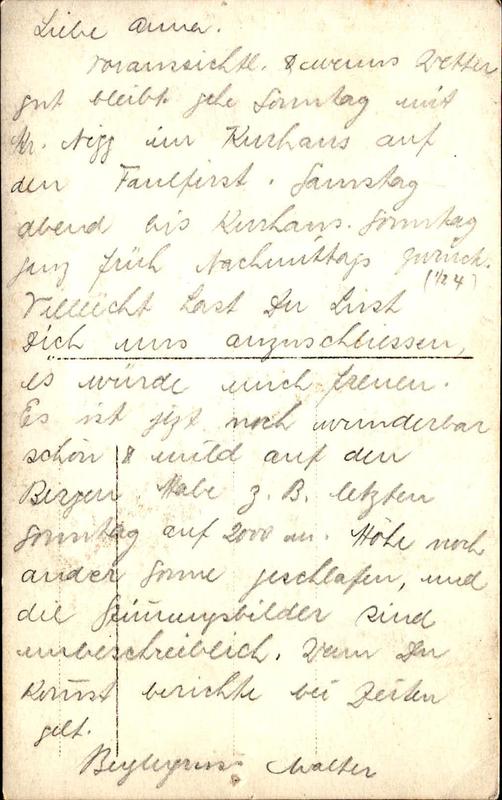 Liebe Anna.
Voraussichtl. & wenns Wetter
gut bleibt gehe Sonntag mit
Hr. Nigg im Kurhaus auf
den Faulfirst. Samstag
abend bis Kurhaus. Sonntag
ganz früh Nachmittags zurück.
(1/2 4)
Villeicht hast Du Lust
Dich uns anzuschliessen,
es würde mich freuen.
Es ist jezt noch wunderbar
schön & mild auf den
Bergen. Habe z. B. letzten
Sonntag auf 2000 m. Höhe noch
an der Sonne geschlafen, und
die Stimmungsbilder sind
unbeschreiblich. Wenn Du
kommst berichte bei Zeiten
gelt.
Walter